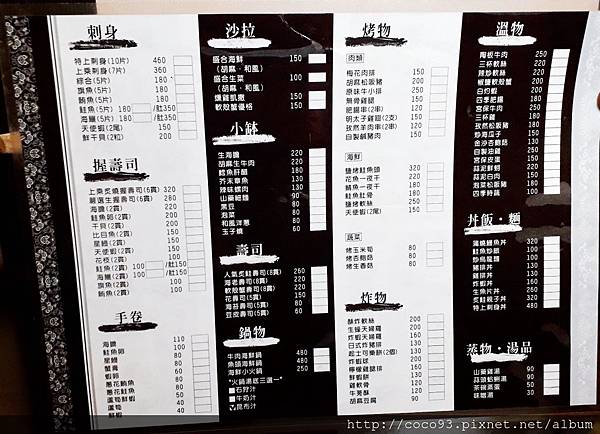 刺身
特上刺身(10片) 460
上乘刺身(7片) 360
綜合(5片) 180
旗魚(5片) 180
鮪魚(5片) 180
鮭魚(5片) 180 /肚350
海鱺(5片) 180 /肚350
天使蝦(2尾) 150
鮮干貝(2粒) 200
握壽司
上乘炙燒握壽司(6貫) 320
嚴選生握壽司(6貫) 280
海膽(2貫) 220
鮭魚卵(2貫) 200
干貝(2貫) 200
比目魚(2貫) 150
星鰻(2貫) 150
天使蝦(2貫) 150
花枝(2貫) 100
鮭魚(2貫) 100 /肚150
海鱺(2貫) 100 /肚150
旗魚(2貫) 100
鮪魚(2貫) 100
手卷
海膽 110
鮭魚卵 100
星鰻 80
蟹膏 80
蝦卵 60
蔥花鮪魚 80
蔥花鮭魚 80
蘆筍鮮蝦 60
蘆筍 60
沙拉
盛合海鮮 150
(胡麻・和風)
盛合生菜 100
(胡麻・和風)
燻雞凱撒 150
軟殼蟹優格 150
小缽
生海膽 220
胡麻生牛肉 220
鱈魚肝醋 180
芥末章魚 150
辣味螺肉 150
山藥細麵 100
黑豆 80
泡菜 80
和風洋蔥 80
玉子燒 60
壽司
人氣炙鮭壽司(8貫) 260
海老壽司(8貫) 220
軟殼蟹壽司(8貫) 220
花壽司(5貫) 150
海苔壽司(5貫) 150
豆皮壽司(5貫) 150
鍋物
牛肉海鮮鍋 480
魚頭海鮮鍋 480
海鮮小火鍋 350
*火鍋湯底三選一*
■石狩汁
■牛奶汁
■昆布汁
烤物
肉類
梅花肉排 150
胡麻松阪豬 200
原味牛小排 250
無骨雞腿 180
肥腸串(2串) 120
明太子雞翅(2支) 150
孜然羊肉串(2串) 150
自製鹹豬肉 150
海鮮
鹽烤鮭魚頭 320
花魚一夜干 250
鯖魚一夜干 180
鮭魚肚骨 180
鹽烤軟絲 200
天使蝦(2尾) 150
蔬菜
烤玉米筍 80
烤杏鮑菇 80
烤生香菇 80
炸物
酥炸軟絲 200
生蠔天婦羅 200
炸蝦天婦羅 160
日式炸豬排 150
起士可樂餅(2個) 130
炸蝦球 150
檸檬雞腿排 150
鮮蝦餅 130
雞軟骨 120
牛蒡酥 100
胡麻豆腐 90
溫物
陶板牛肉 250
三杯軟絲 220
辣炒軟絲 220
椒鹽軟殼蟹 200
白灼蝦 200
四季肥腸 180
宮保牛肉 180
三杯雞 180
孜然松阪豬 180
炒海瓜子 180
金沙杏鮑菇 150
自製油雞 150
宮保皮蛋 150
蒜泥鮮蚵 150
蒜泥白肉 150
泡菜松阪豬 180
四季時蔬 100
丼飯・麵
蒲燒鰻魚丼 320
鮭魚炒飯 100
炒烏龍麵 120
豬排丼 150
雞排丼 150
炸蝦丼 160
生魚片丼 250
炙鮭親子丼 280
特上刺身丼 480
蒸物・湯品
山藥雞湯 50
蒜頭蛤蜊湯 50
茶碗蒸蛋 50
味噌湯 30
http://coco93.pixnet.net/album